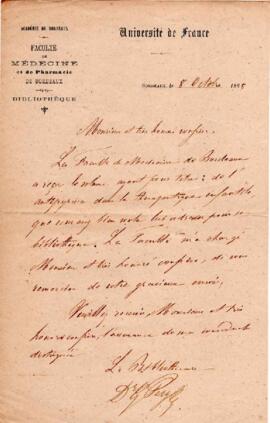 ACADÉMIE DE BORDEAUX
FACULTÉ
DE
MÉDECINE
et de Pharmacie
DE BORDEAUX
BIBLIOTHÈQUE
Université de France
BORDEAUX, le 8 Octobre 188
Monsieur et très honoré confrère,
La Faculté de Médecine de Bordeaux
a reçu le volume ayant pour titre : de l'
antipyrine dans la thérapeutique infantile
que vous avez bien voulu lui adresser pour sa
bibliothèque. La Faculté m'a chargé
Monsieur et très honoré confrère, de vous
remercier de votre gracieux envoi.
Veuillez recevoir, Monsieur et très
honoré confrère, l'assurance de ma considération
distinguée
Le Bibliothécaire
Dr